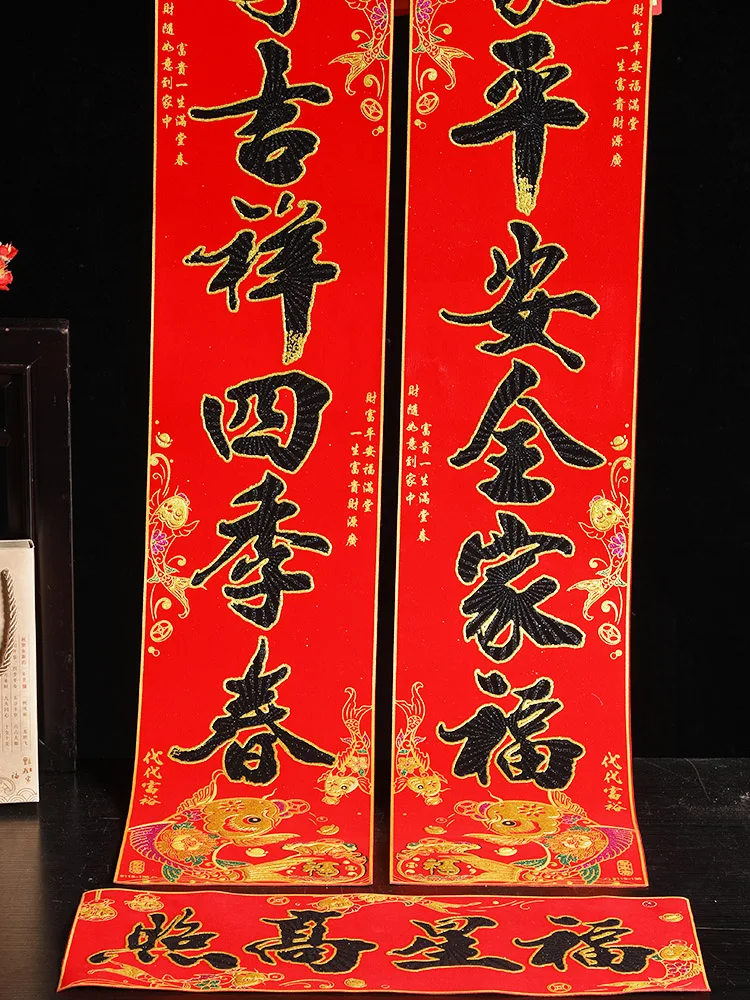 平安全家福
吉祥四季春
福星高照
財富平安福滿堂
一生富貴財源廣
富貴一生滿堂春
財隨如意到家中
財富平安福滿堂
一生富貴財源廣
富貴一生滿堂春
財隨如意到家中
代代富裕
代代富裕
福
福